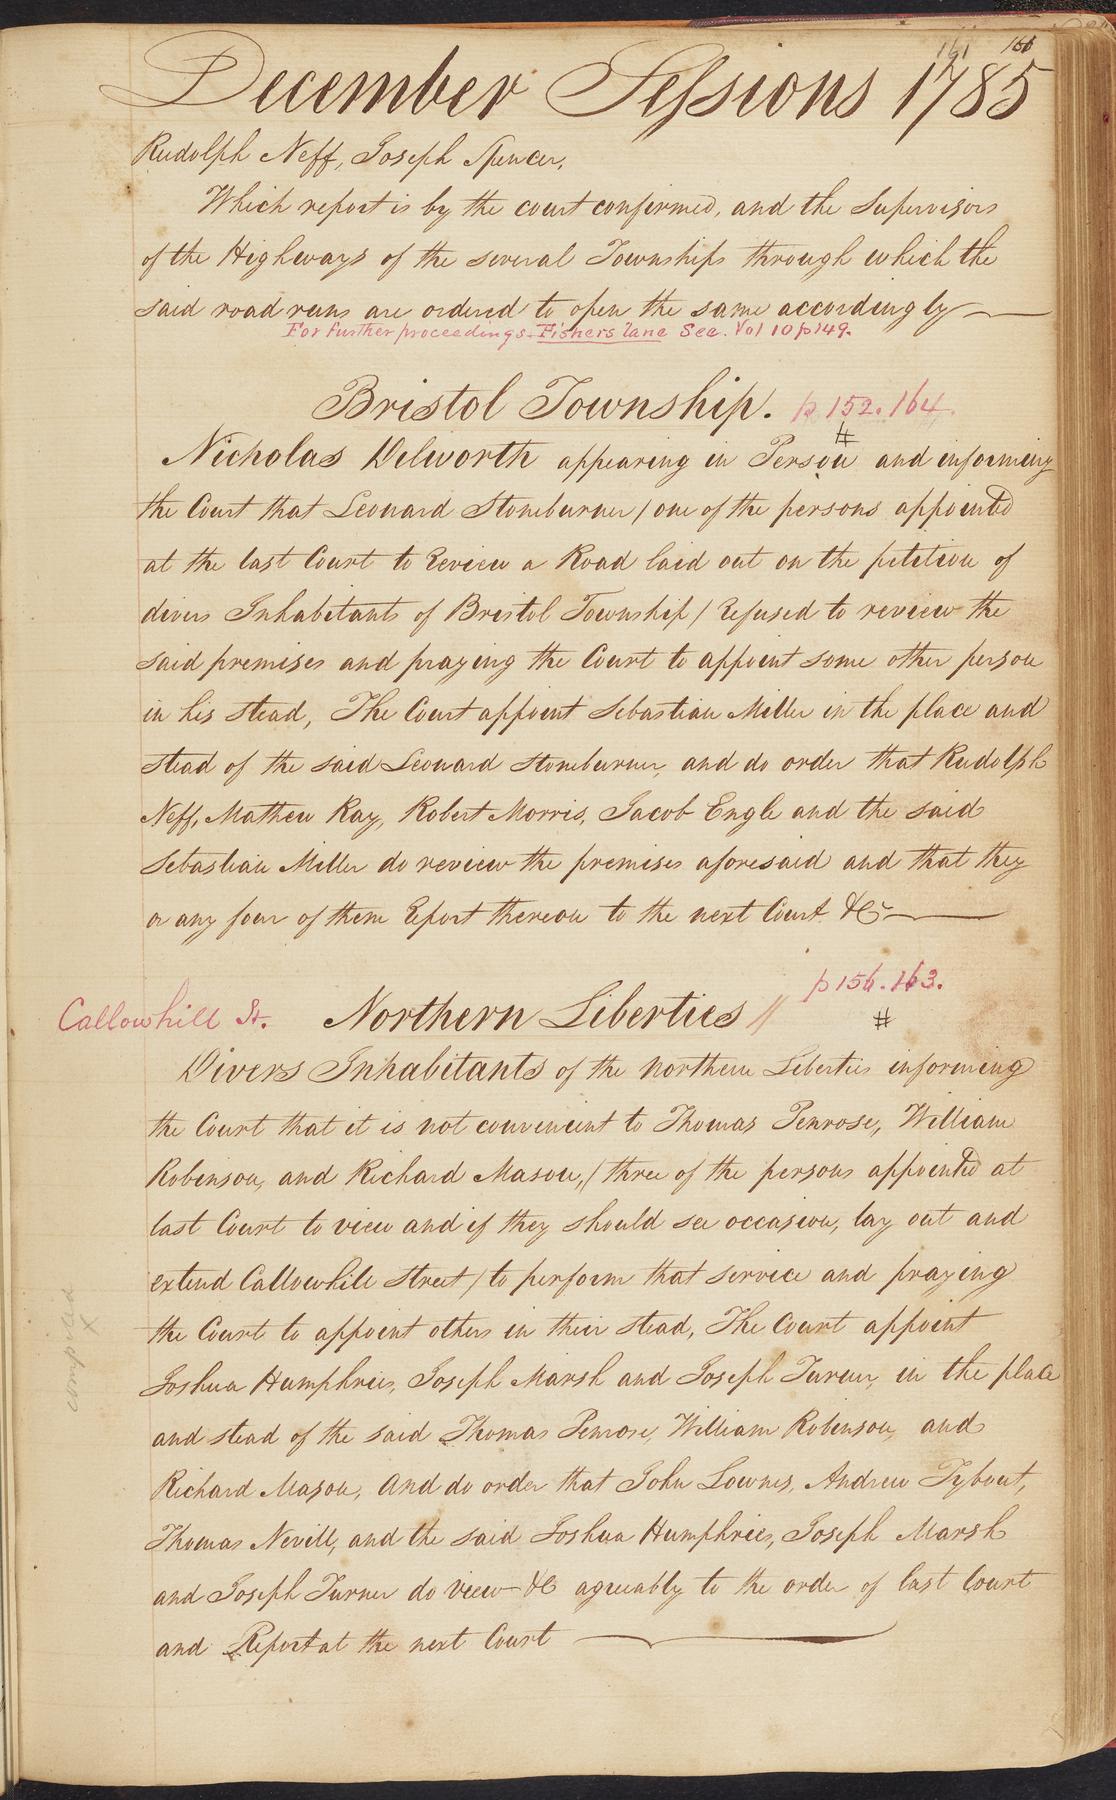 161 166
December Sessions 1785
Rudolph Neff, Joseph Spencer,
Which report is by the court confirmed, and the Supervisors
of the Highways of the several Townships through which the
said road runs are ordered to open the same accordingly
For further proceedings. Fishers lane See. Vol 10 p 149.
Bristol Township. p 152. 164.
#
Nicholas Dilworth appearing in Person and informing
the Court that Leonard Stoneburner / one of the persons appointed
at the last Court to Review a Road laid out on the petition of
divers Inhabitants of Bristol Township / Refused to review the
said premises and praying the Court to appoint some other person
in his stead, The Court appoint Sebastian Miller in the place and
stead of the said Leonard Stoneburner, and do order that Rudolph
Neff, Mathew Ray, Robert Morris, Jacob Engle and the said
Sebastian Miller do review the premises aforesaid and that they
or any four of them Report thereon to the next Court &c
p 156. 163.
Callowhill St. Northern Liberties // #
Divers Inhabitants of the Northern Liberties informing
the Court that it is not convenient to Thomas Penrose, William
Robinson, and Richard Mason, / three of the persons appointed at
last Court to view and if they should see occasion, lay out and
extend Callowhill Street / to perform that service and praying
the Court to appoint others in their stead, The Court appoint
Joshua Humphries, Joseph Marsh and Joseph Turner, in the place
and stead of the said Thomas Penrose, William Robinson, and
Richard Mason, and do order that John Lownes, Andrew Tybout,
Thomas Nevill, and the said Joshua Humphries, Joseph Marsh
and Joseph Turner do view &c agreeably to the order of last Court
and Report at the next Court
compiled
X